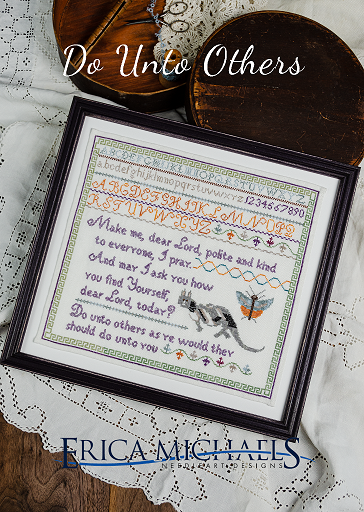 Do Unto Others
ABCDEFGHIJKLMNOPQRSTUVWXYZ
abcdefghijklmnopqrstuvwxyz 1234567890
ABCDEFGHIJKLMNOPQ
RSTUVWXYZ
Make me, dear Lord, polite and kind
to everyone, I pray.
And may I ask you how
you find Yourself,
dear Lord, today?
Do unto others as ye would they
should do unto you
ERICA MICHAELS
NEEDLEART DESIGNS